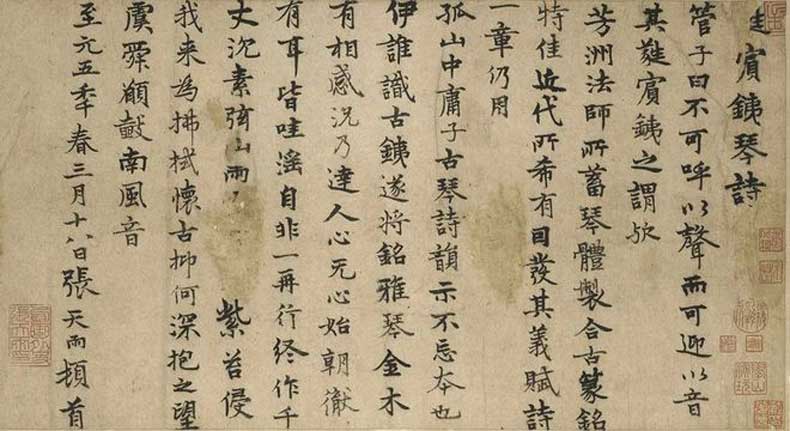 蕤賓鐵琴詩
管子曰不可呼以聲而可迎以音
其蕤賓鐵之謂歟
芳洲法師所蓄琴體製合古篆銘
特佳近代所希有因發其義賦詩
一章仍用
孤山中庸子古琴詩韻示不忘本也
伊誰識古鐵遂將銘雅琴金木
有相感況乃達人心无心始朝徹
有耳皆哇滛自非一再行終作千
丈沉素弦山雨 紫苔侵
我来為拂拭懷古抑何深抱之望
虞舜願鼓南風音
至元五年春三月十八日張天雨頓首